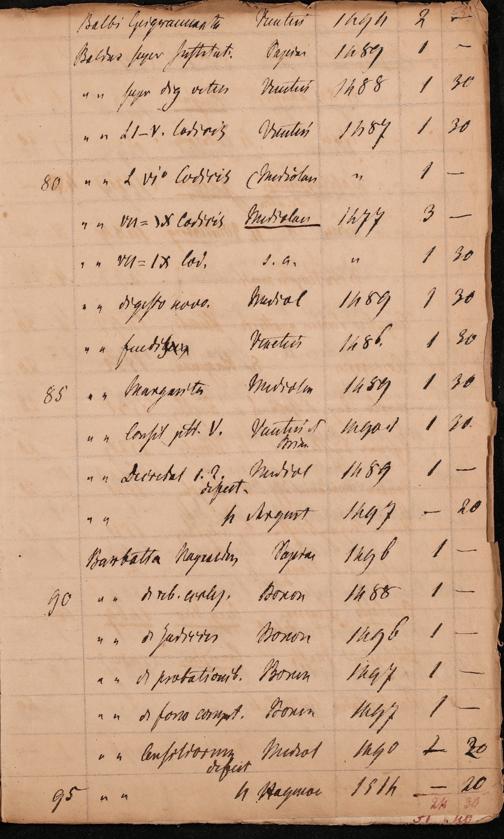 Balbi Venetiis 1494 2 —
Baldus super Institut. Papiae 1489 1 —
" " super dig vetus Venetiis 1488 1 30
" " L I-V. Codicis Venetiis 1487 1 30
80 " " L VIº Codicis Mediolan " 1 —
" " VII = IX Codicis Mediolan 1477 3 —
" " VII = IX Cod. s. a. " 1 30
" " digesto novo. Mediol 1489 1 30
" " Venetiis 1486. 1 30
85 " " Margarita Mediolan 1489 1 30
" " Consil ptt. V. Venetiis et 1490 1 30
Brixiae
" " Decretal 1. 2. Mediol 1489 1 —
defect.
" " August 1497 — 20
Barbatia Papiae 1496 1 —
90 " " Bonon 1488 1 —
" " de Judiciis Bonon 1496 1 —
" " de probationib. Bonon 1497 1 —
" " de foro compet. Bonon 1497 1 —
" " Consiliorum Mediol 1490 20
defect
95 " " Hagenoe 1514 — 20